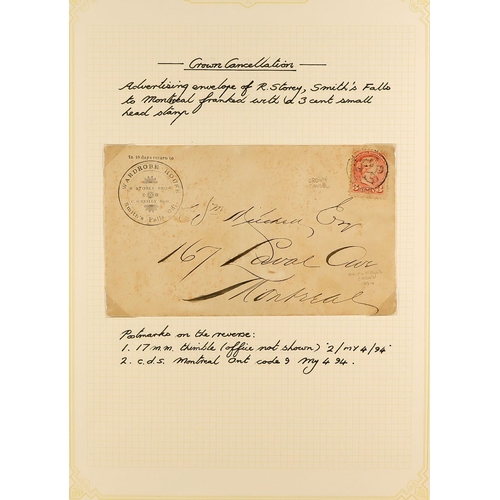 Crown Cancellation
Advertising envelope of R. Storey, Smith's Falls
to Montreal franked with a 3 cent small
head stamp
In 10 days return to
WARDROBE HOUSE
Smith's Falls Ont.
Wm Mitchell Esq
167 Laval Ave
Montreal
Postmarks on the reverse:
1. 17 m.m. thimble (office not shown) '2/MY 4/94'
2. c.d.s. Montreal Ont code 9 My 4 94.